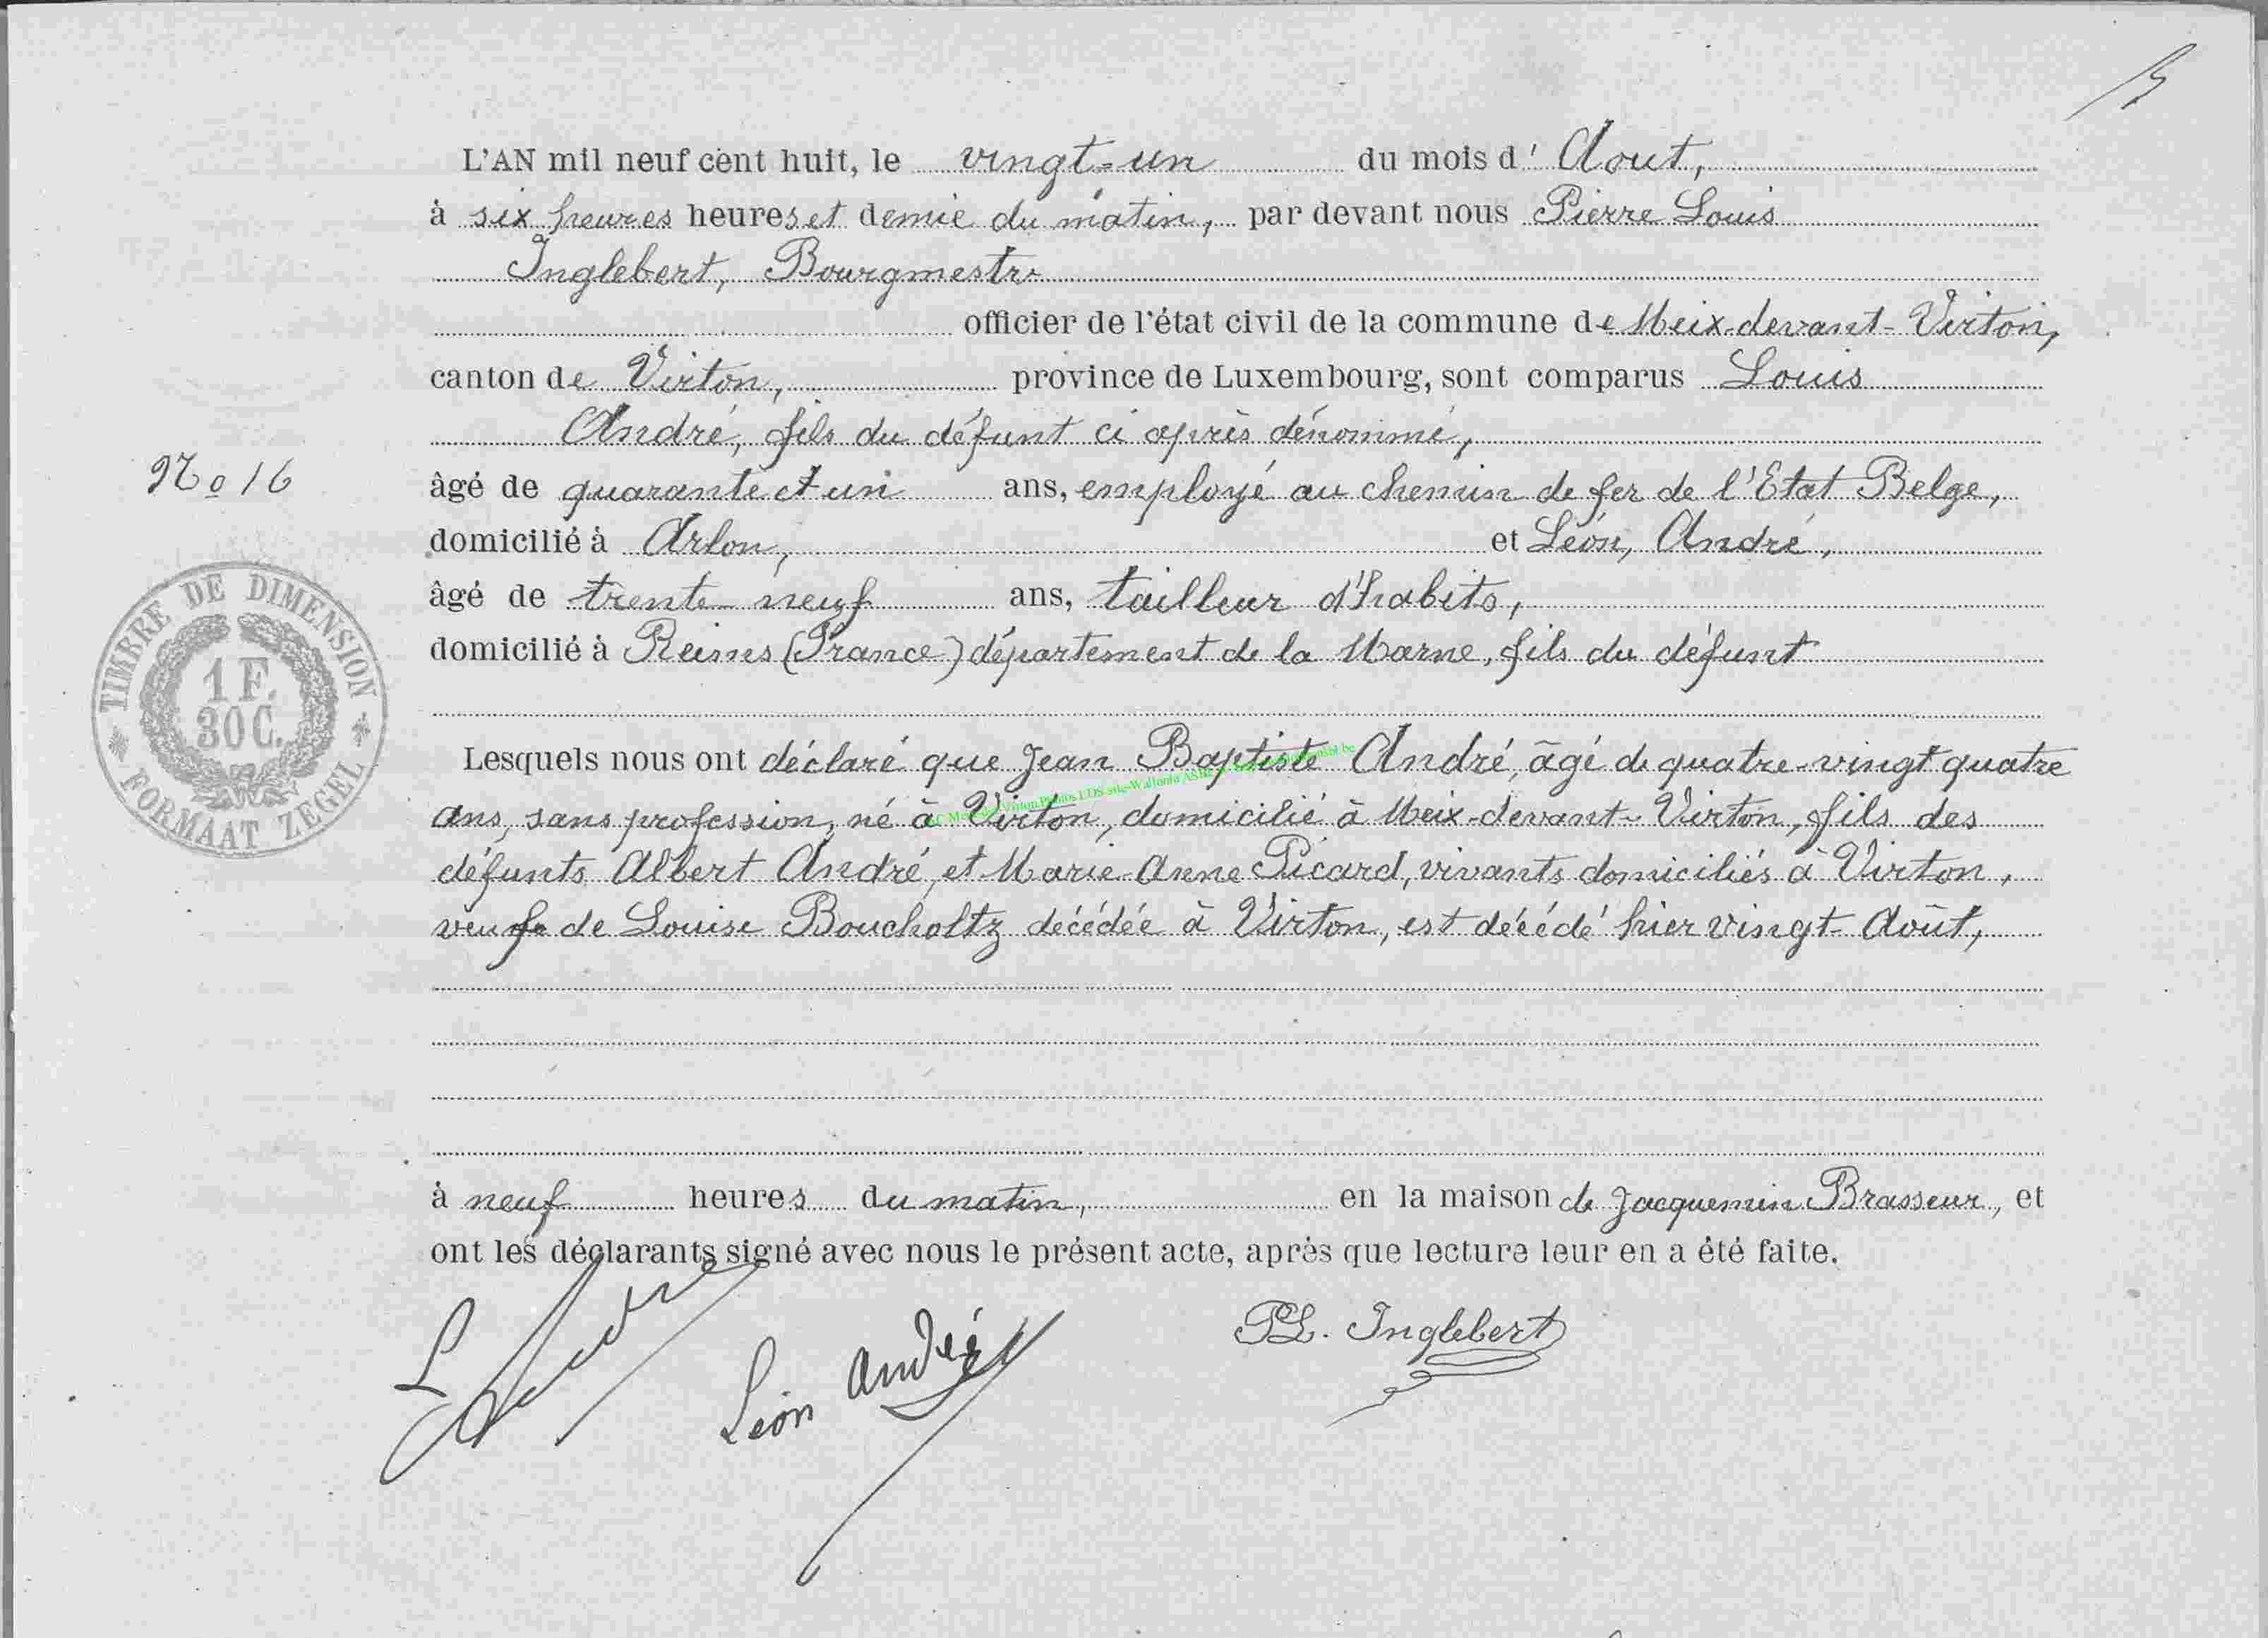 L'AN mil neuf cent huit, le vingt-un du mois d' Aout,
à six heures heures et demie du matin, par devant nous Pierre Louis
Inglebert, Bourgmestre
officier de l'état civil de la commune de Meix-devant-Virton,
canton de Virton, province de Luxembourg, sont comparus Louis
André, fils du défunt ci après dénommé,
No 16
âgé de quarante et un ans, employé au chemin de fer de l'Etat Belge,
domicilié à Arlon, et Léon, André,
âgé de trente-neuf ans, tailleur d'habits,
domicilié à Reims (France) département de la Marne, fils du défunt
TIMBRE DE DIMENSION
1 F.
30 C.
FORMAAT ZEGEL
Lesquels nous ont déclaré que Jean Baptiste André, âgé de quatre-vingt quatre
ans, sans profession, né à Virton, domicilié à Meix-devant-Virton, fils des
défunts Albert André, et Marie-Anne Picard, vivants domiciliés à Virton,
veuf de Louise Boucholtz décédée à Virton, est décédé hier vingt-Août,
à neuf heures du matin, en la maison de Jacquemin Brasseur, et
ont les déclarants signé avec nous le présent acte, après que lecture leur en a été faite.
L André
Léon André
PL. Inglebert